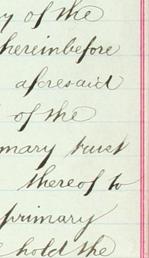 y of the
hereinbefore
aforesaid
of the
mary trust
thereof to
primary
hold the